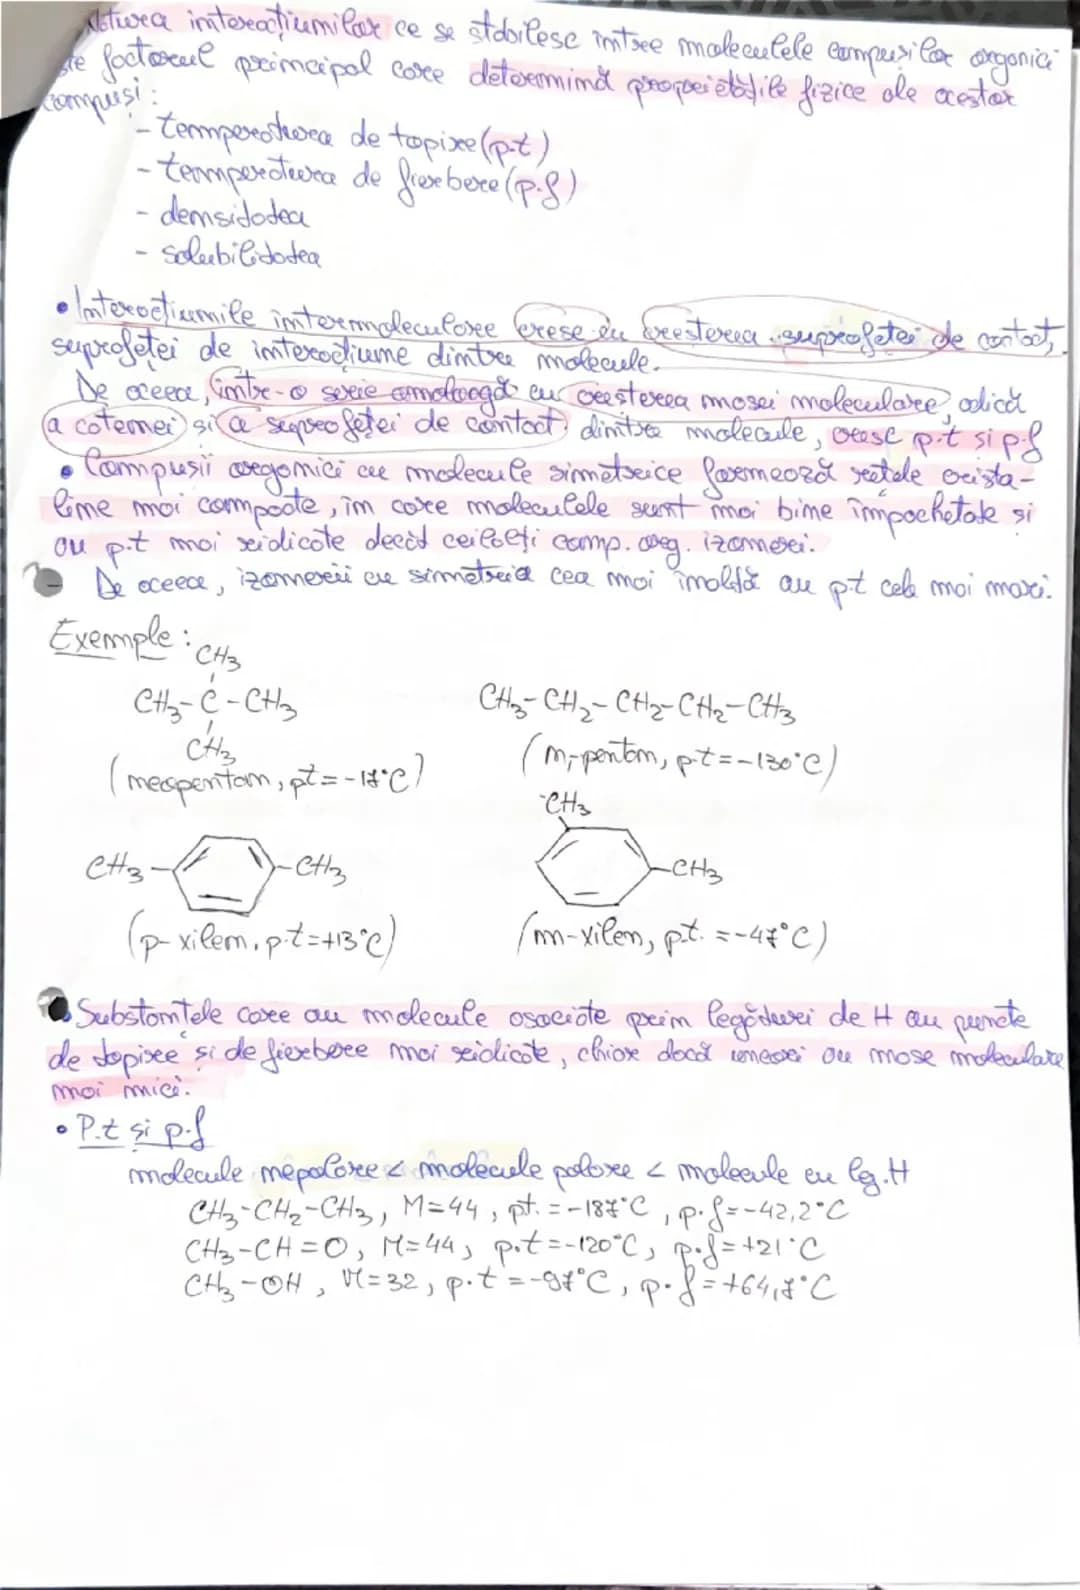 Natura interacțiunilor ce se stabilesc între moleculele compușilor organici
este factorul principal care determină proprietățile fizice ale acestor
compuși:
- temperatura de topire (p.t)
- temperatura de fierbere (p.f)
- densitatea
- solubilitatea
• Interacțiunile intermoleculare cresc cu creșterea suprafeței de contact,
suprafeței de interacțiune dintre molecule.
De aceea, într-o serie omoloagă cu creșterea masei moleculare, adică
a catenei și a suprafeței de contact dintre molecule, cresc p.t și p.f
• Compușii organici cu molecule simetrice formează rețele crista-
line mai compacte, în care moleculele sunt mai bine împachetate și
au p.t mai ridicate decât ceilalți comp. org. izomeri.
De aceea, izomerii cu simetria cea mai înaltă au p.t cele mai mari.
Exemple:
CH3
CH3-C-CH3
CH3
(neopentan, pt=-17°C)
CH3-CH2-CH2-CH2-CH3
(n-pentan, p.t=-130°C)
CH3- -CH3
(p-xilen, p.t=+13°C)
-CH3
-CH3
(m-xilen, p.t. =-47°C)
Substanțele care au molecule asociate prin legături de H au puncte
de topire și de fierbere mai ridicate, chiar dacă uneori au mase moleculare
mai mici.
• P.t și p.f
molecule nepolare < molecule polare < molecule cu leg. H
CH3-CH2-CH3, M=44, pt.=-187°C, p.f=-42,2°C
CH3-CH=O, M=44, p.t=-120°C, p.f=+21°C
CH3-OH, M=32, p.t=-97°C, p.f=+64,7°C